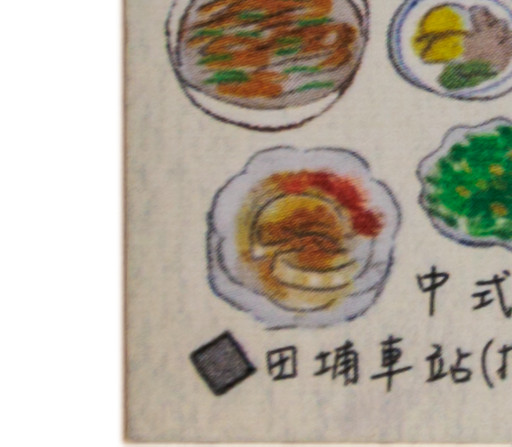 中式
◆田埔車站(